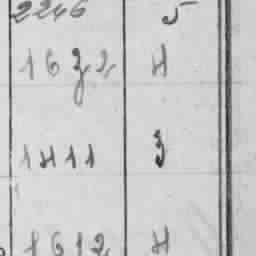 2246 5
1632 4
1411 3
1612 4